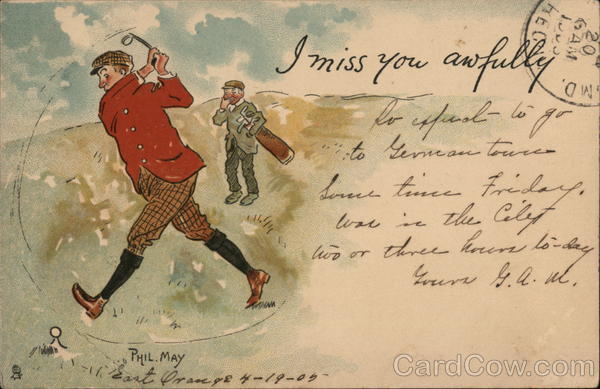 I miss you awfully
20
6 AM
1905
REC'D.
Do expect to go
to Germantown
some time Friday.
was in the City
two or three hours to-day
Yours G. A. M.
PHIL. MAY
East Orange 4-19-05
CardCow.com